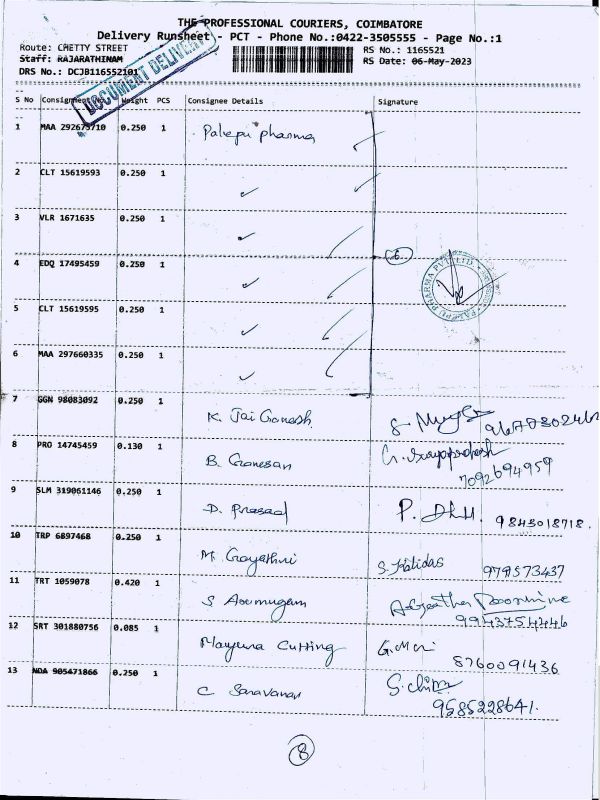 THE PROFESSIONAL COURIERS, COIMBATORE
Delivery Runsheet - PCT - Phone No.:0422-3505555 - Page No.:1
Route: CHETTY STREET
RS No.: 1165521
Staff: RAJARATHINAM
RS Date: 06-May-2023
DRS No.: DCJB116552101
DOCUMENT DELIVERY
S No Consignment Weight PCS Consignee Details Signature
1 MAA 292675710 0.250 1 Palepu pharma
2 CLT 15619593 0.250 1 ✓
3 VLR 1671635 0.250 1 ✓
4 EDQ 17495459 0.250 1 ✓
6
PALEPU PHARMA PVT LTD
5 CLT 15619595 0.250 1 ✓
6 MAA 297660335 0.250 1 ✓
7 GGN 98083092 0.250 1 K. Jai Ganesh
8 PRO 14745459 0.130 1 B. Ganesan
7092694959
9 SLM 319061146 0.250 1 D. Prasad P. 9843018718.
10 TRP 6897468 0.250 1 M. Gayathri S. Kalidas 979573437
11 TRT 1059078 0.420 1 S Arumugam
9943754446
12 SRT 301880756 0.085 1 Mayura Cutting G. Mani
8760091436
13 NDA 905471866 0.250 1 C Saravanan
9585228641.
8